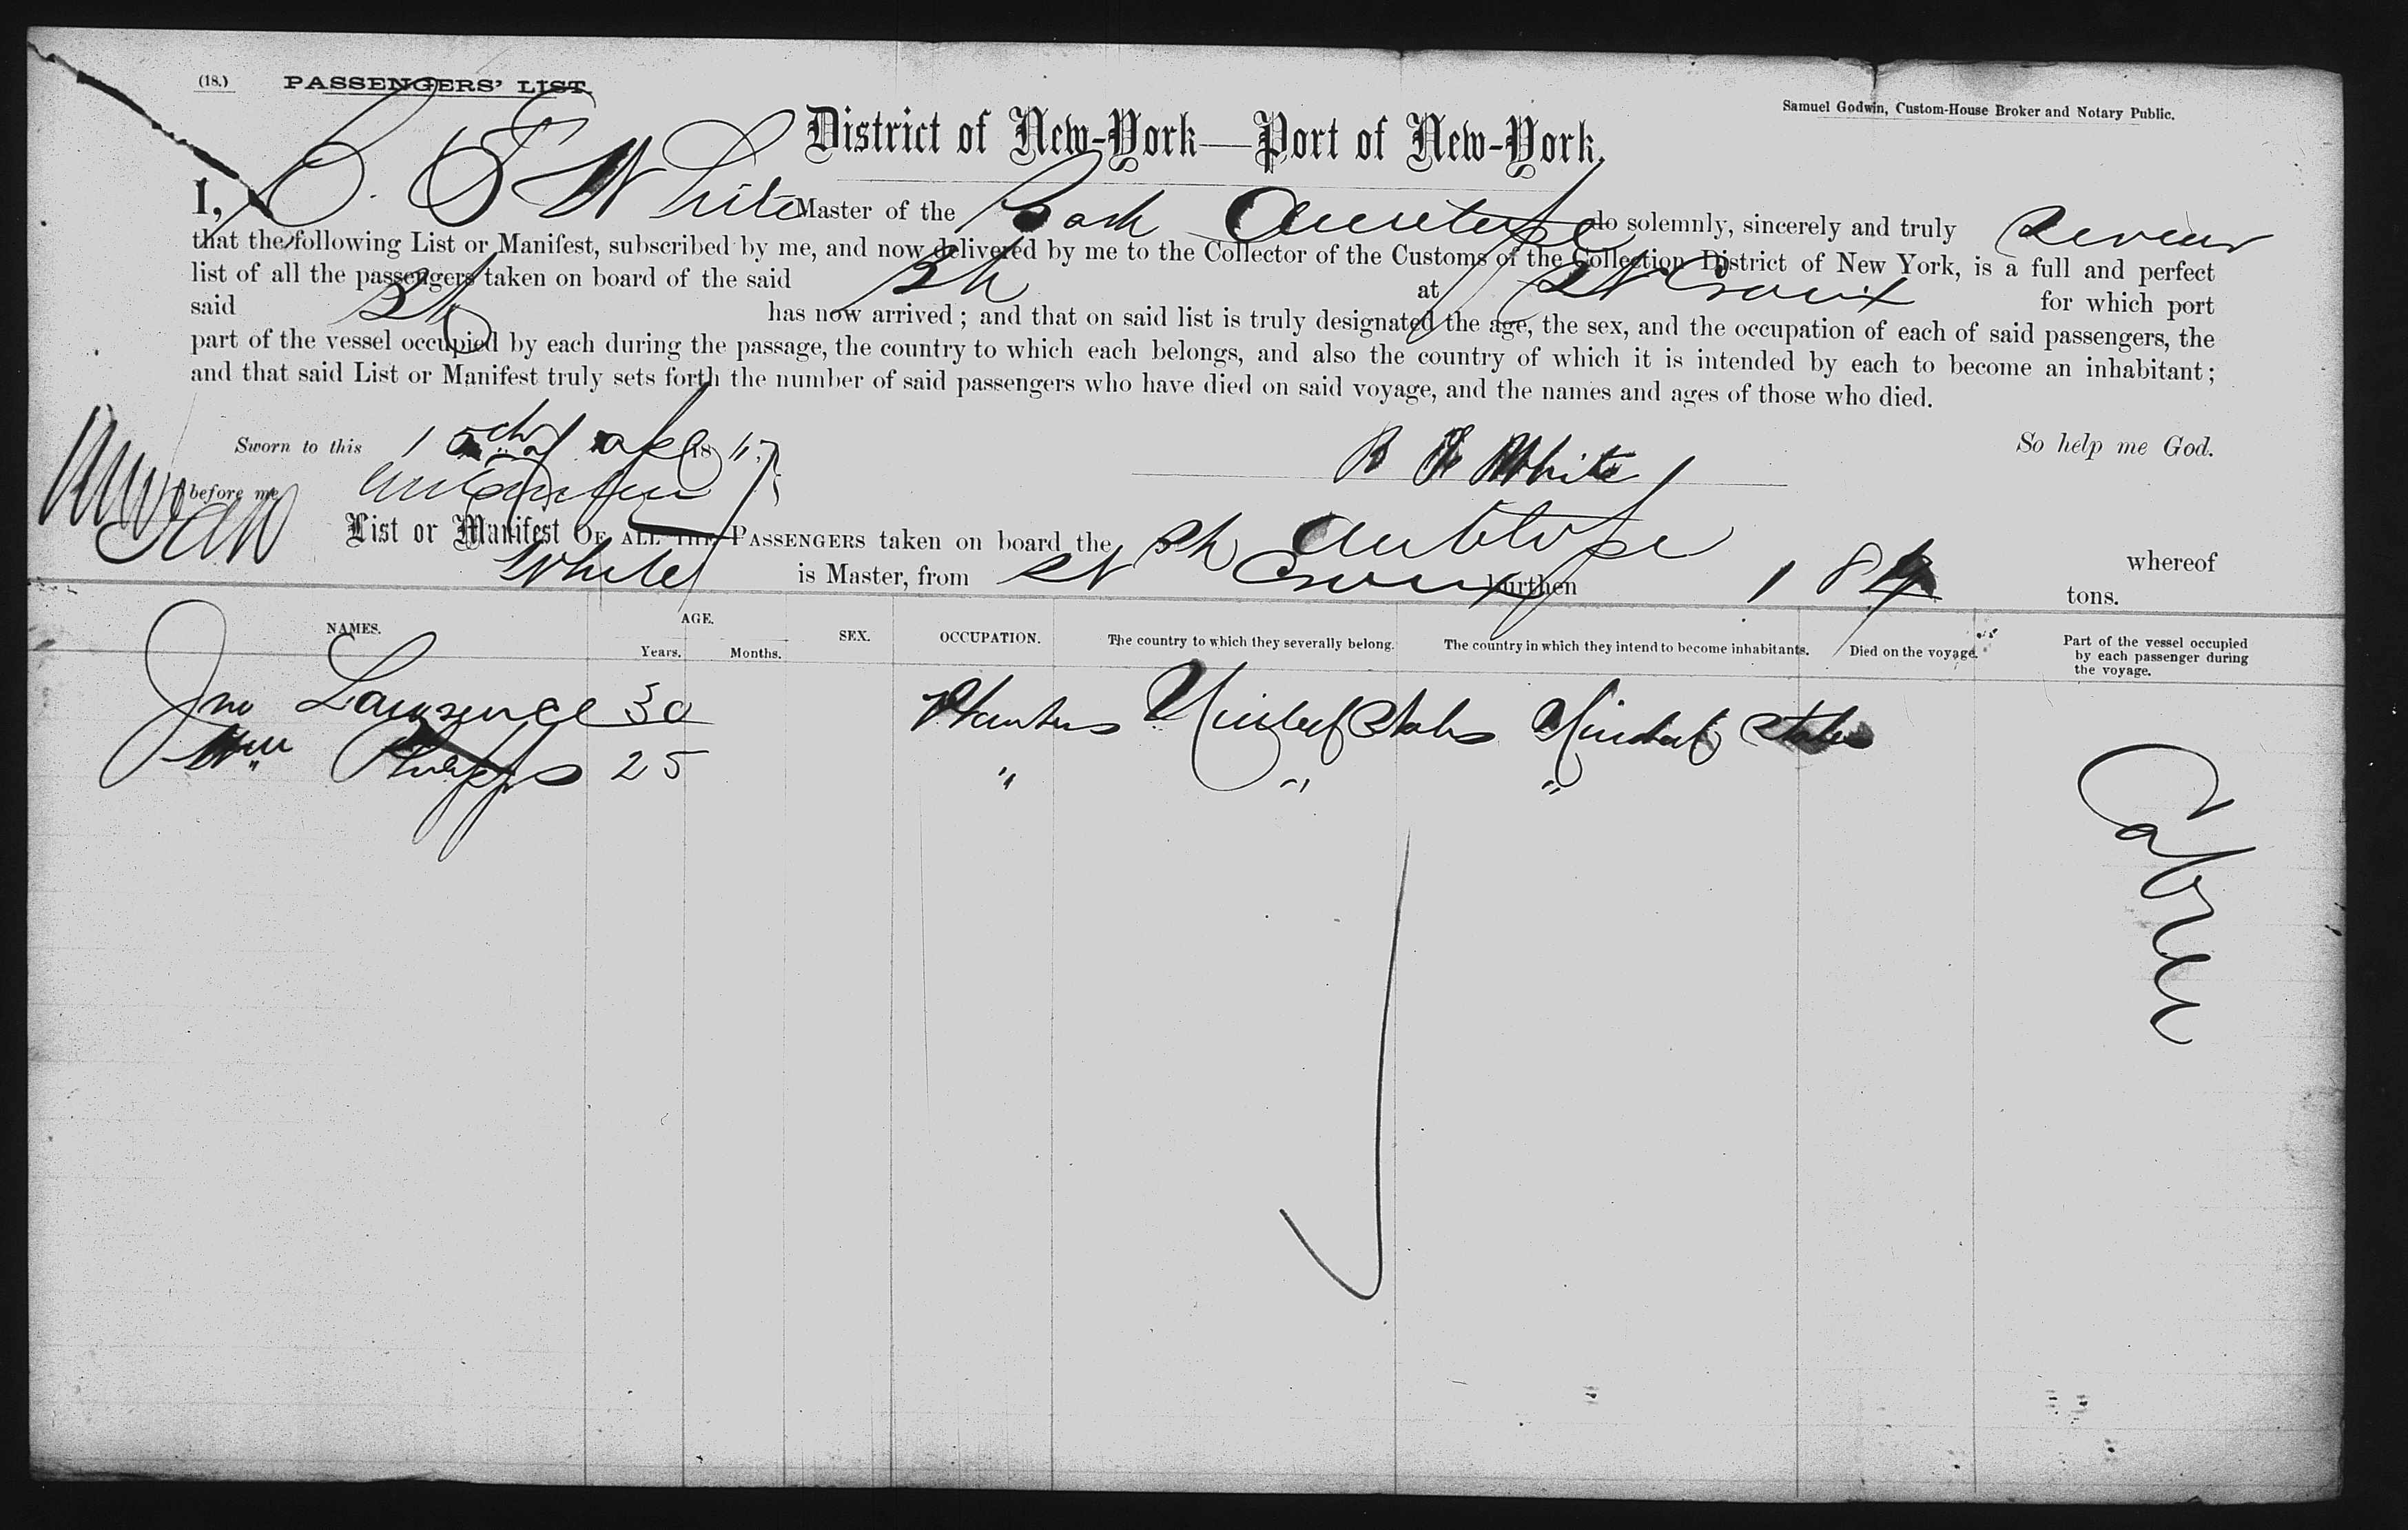 (18.) PASSENGERS' LIST. Samuel Godwin, Custom-House Broker and Notary Public.
District of New-York—Port of New-York.
I, White Master of the do solemnly, sincerely and truly swear
that the following List or Manifest, subscribed by me, and now delivered by me to the Collector of the Customs of the Collection District of New York, is a full and perfect
list of all the passengers taken on board of the said at St Croix for which port
said has now arrived; and that on said list is truly designated the age, the sex, and the occupation of each of said passengers, the
part of the vessel occupied by each during the passage, the country to which each belongs, and also the country of which it is intended by each to become an inhabitant;
and that said List or Manifest truly sets forth the number of said passengers who have died on said voyage, and the names and ages of those who died.
So help me God.
Sworn to this 15th of 18
White
before me
List or Manifest OF ALL THE PASSENGERS taken on board the Antelope whereof
White is Master, from St Croix burthen tons.
NAMES. AGE. Years. Months. SEX. OCCUPATION. The country to which they severally belong. The country in which they intend to become inhabitants. Died on the voyage. Part of the vessel occupied by each passenger during the voyage.
Jno Lawrence 30 United States United States
Wm Phipps 25 " " "
Cabin